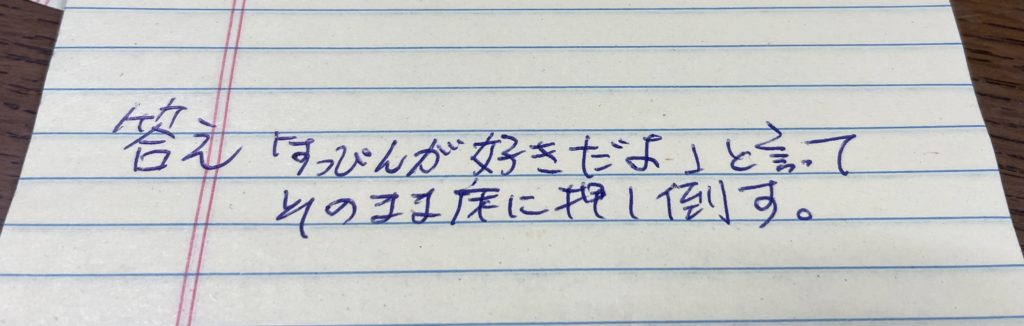 答え「すっぴんが好きだよ」と言って
そのまま床に押し倒す。